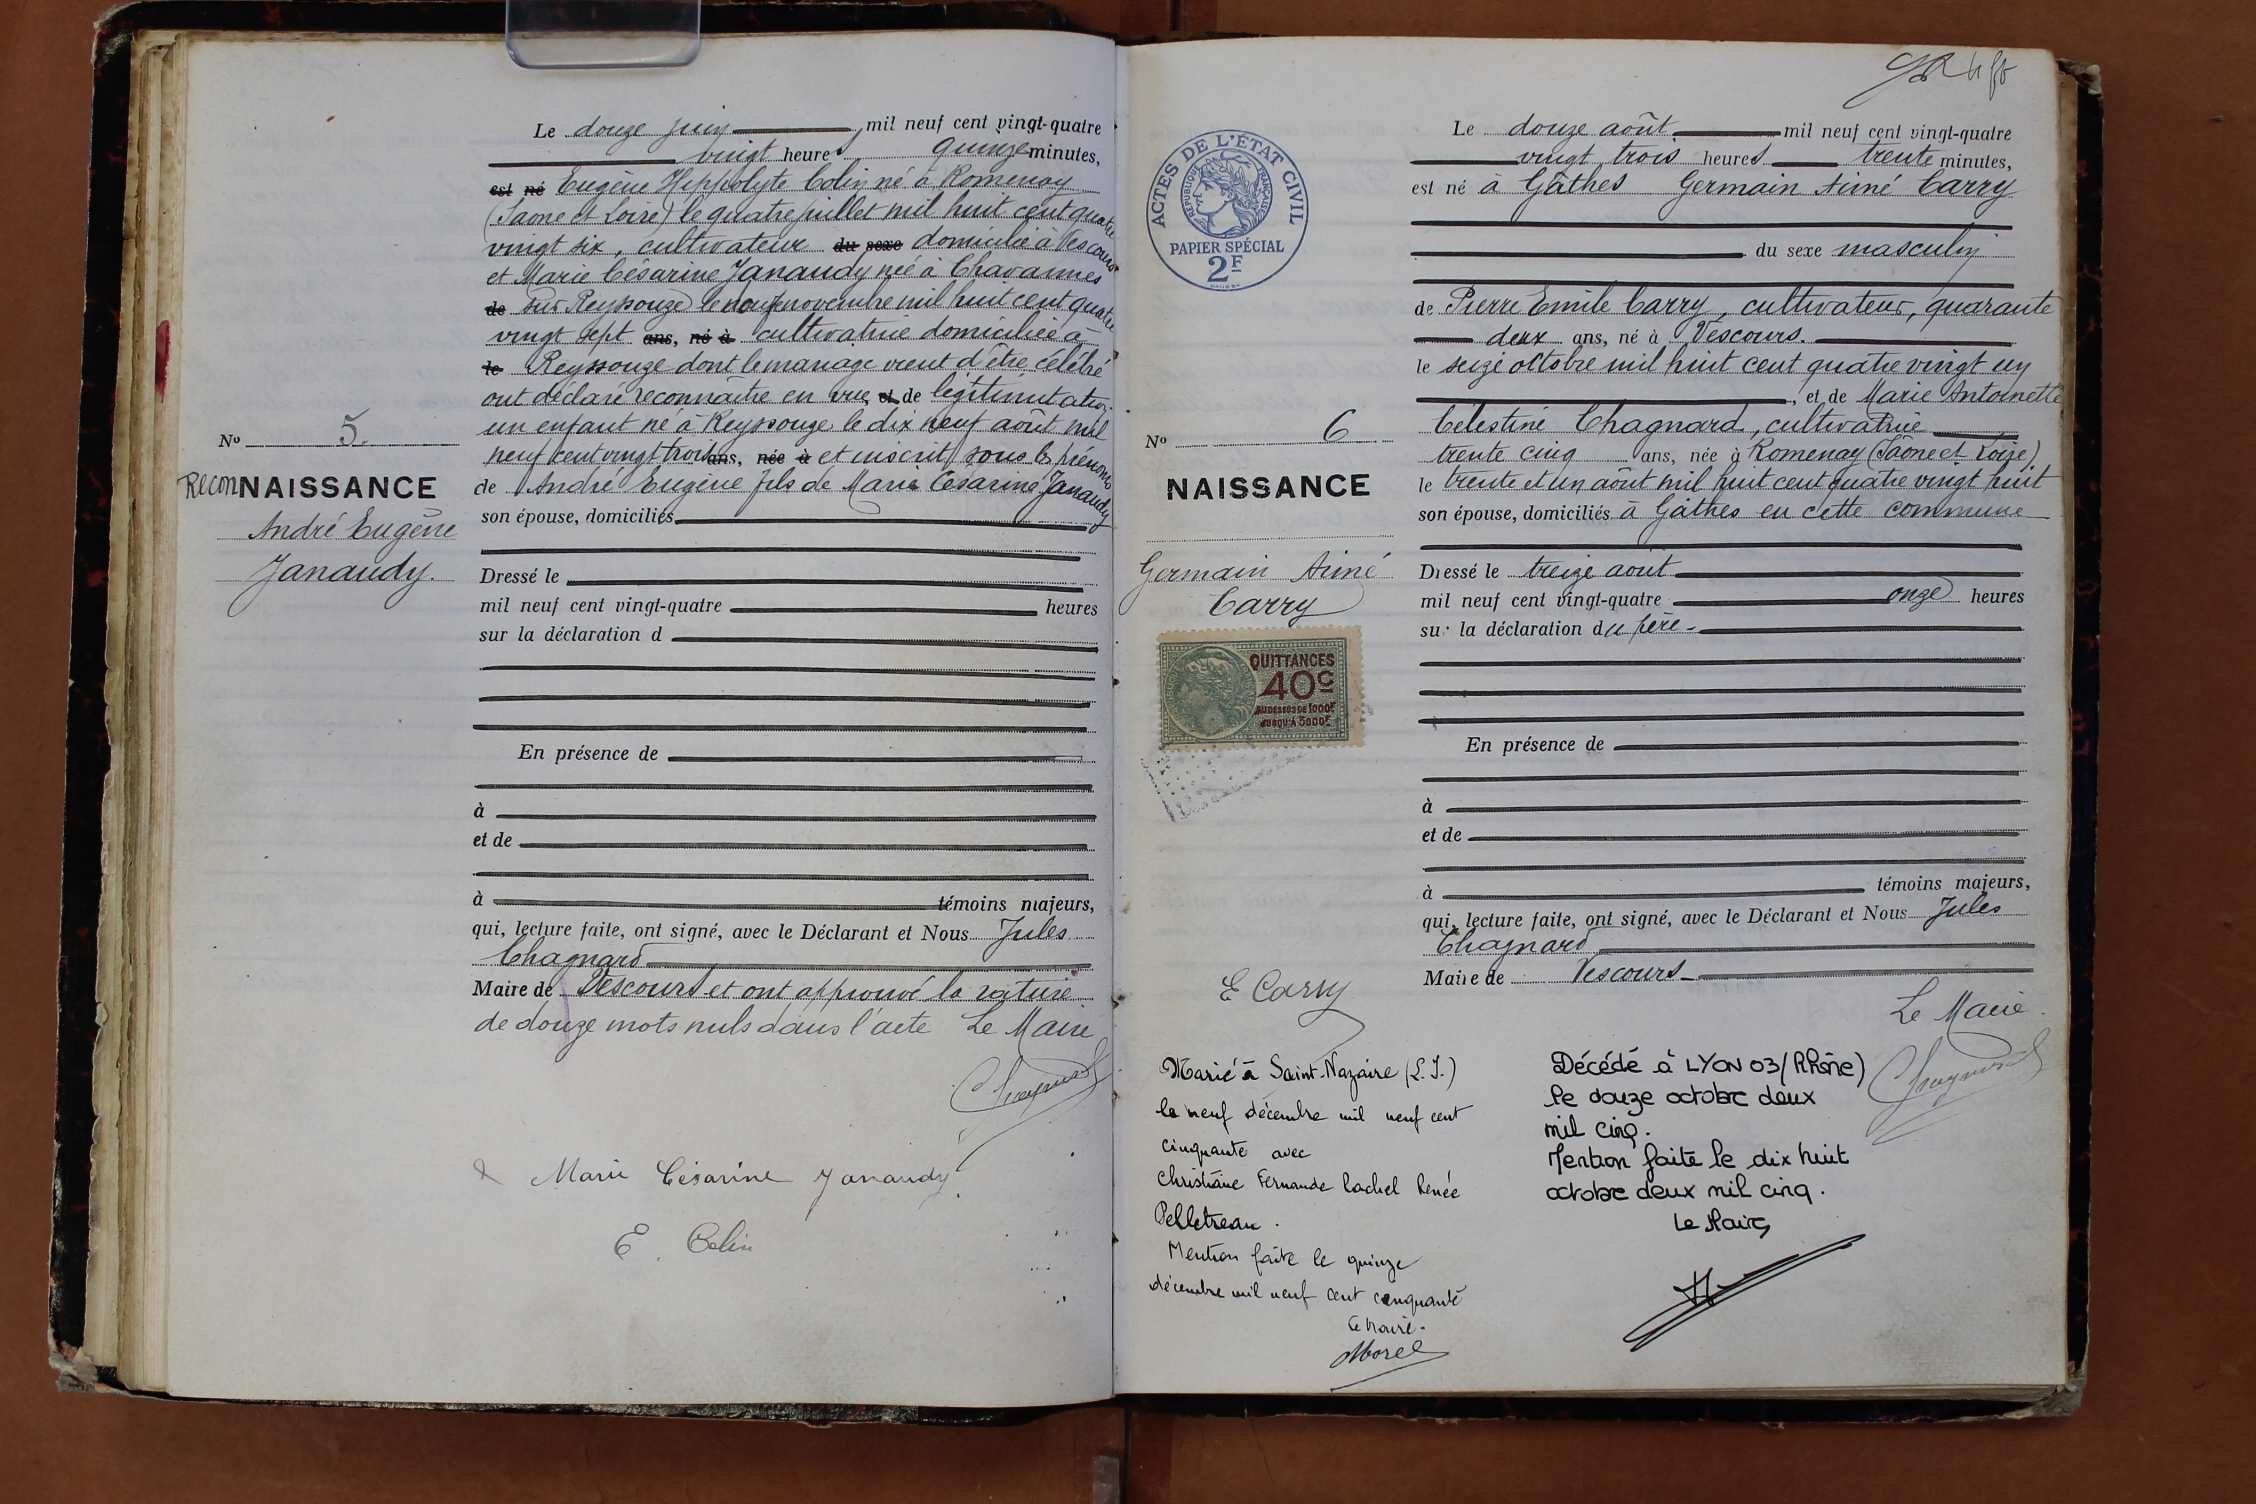 Le douze juin mil neuf cent vingt-quatre
vingt heures quinze minutes,
est né Eugène Hippolyte Colin né à Romenay
(Saone et Loire) le quatre juillet mil huit cent quatre
vingt six, cultivateur du sexe domicilié à Vescours
et Marie Césarine Janaudy née à Chavannes
de sur Reyssouze le neuf novembre mil huit cent quatre
vingt sept ans, né à cultivatrice domiciliée à
le Reyssouze dont le mariage vient d'être célébré
ont déclaré reconnaître en vue et de légitimation
un enfant né à Reyssouze le dix neuf août mil
neuf cent vingt trois ans, née à et inscrit sous les prénoms
de André Eugène fils de Marie Césarine Janaudy
son épouse, domiciliés
No 5.
ReconNAISSANCE
André Eugène
Janaudy.
Dressé le
mil neuf cent vingt-quatre heures
sur la déclaration d
En présence de
à
et de
à témoins majeurs,
qui, lecture faite, ont signé, avec le Déclarant et Nous Jules
Chagnard
Maire de Vescours et ont approuvé la rature
de douze mots nuls dans l'acte Le Maire
Chagnard
Marie Césarine Janaudy
E. Colin
ACTES DE L'ÉTAT CIVIL
RÉPUBLIQUE FRANÇAISE
PAPIER SPÉCIAL
2F
Le douze août mil neuf cent vingt-quatre
vingt trois heures trente minutes,
est né à Gâthes Germain Aimé Carry
du sexe masculin
de Pierre Emile Carry, cultivateur, quarante
deux ans, né à Vescours.
le seize octobre mil huit cent quatre vingt un
, et de Marie Antoinette
Célestine Chagnard, cultivatrice
trente cinq ans, née à Romenay (Saône et Loire)
le trente et un août mil huit cent quatre vingt huit
son épouse, domiciliés à Gâthes en cette commune
No 6
NAISSANCE
Germain Aimé
Carry
QUITTANCES
40c
AU DESSUS DE 1000F
JUSQU'A 3000F
Dressé le treize août
mil neuf cent vingt-quatre onze heures
sur la déclaration du père
En présence de
à
et de
à témoins majeurs,
qui, lecture faite, ont signé, avec le Déclarant et Nous Jules
Chagnard
Maire de Vescours
E Carry
Le Maire
Chagnard
Marié à Saint-Nazaire (L.I.)
le neuf décembre mil neuf cent
cinquante avec
Christiane Fernande Rachel Renée
Pelletreau.
Mention faite le quinze
décembre mil neuf cent cinquante
Le Maire.
Morel
Décédé à LYON 03 (Rhône)
le douze octobre deux
mil cinq.
Mention faite le dix huit
octobre deux mil cinq.
Le Maire